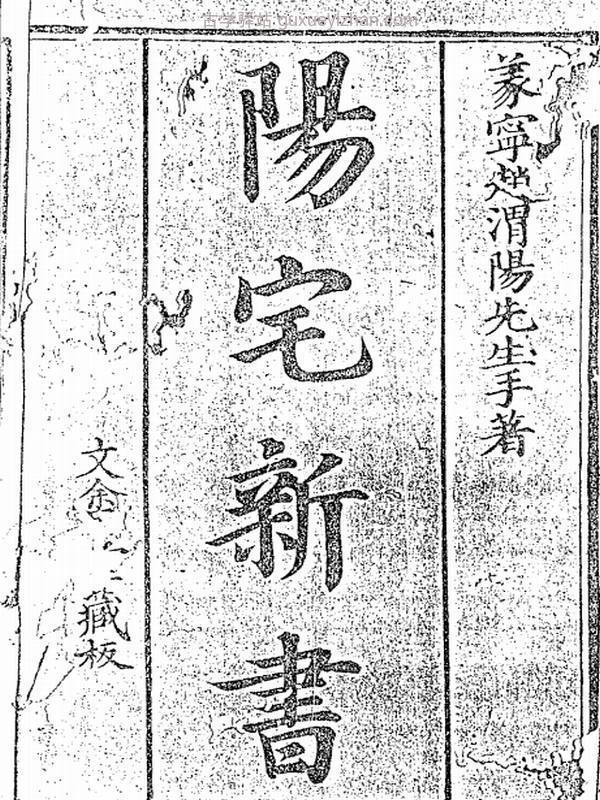 古学驿站.guxueyizhan.com
寧趙渭陽先生手著
陽宅新書
文金
藏板